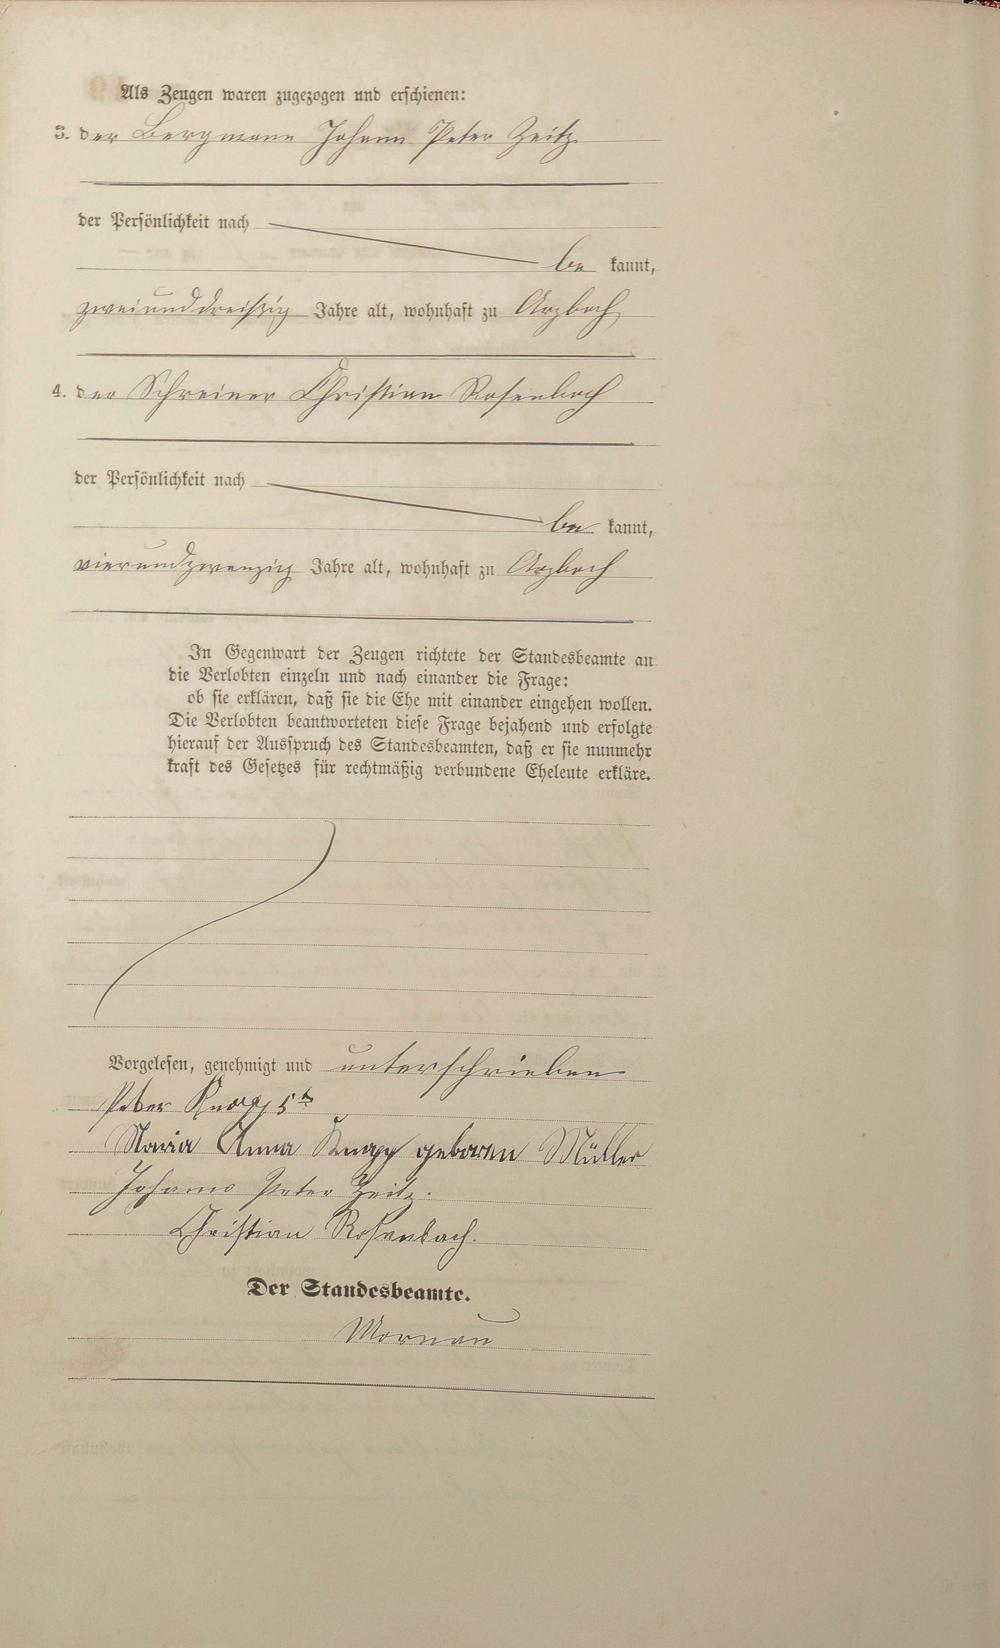 Als Zeugen waren zugezogen und erschienen:
3. der Bergmann Johann Peter Zeitz
der Persönlichkeit nach
be kannt,
zweiunddreißig Jahre alt, wohnhaft zu Arzbach
4. der Schreiner Christian Rosenbach
der Persönlichkeit nach
be kannt,
vierundzwanzig Jahre alt, wohnhaft zu Arzbach
In Gegenwart der Zeugen richtete der Standesbeamte an
die Verlobten einzeln und nach einander die Frage:
ob sie erklären, daß sie die Ehe mit einander eingehen wollen.
Die Verlobten beantworteten diese Frage bejahend und erfolgte
hierauf der Ausspruch des Standesbeamten, daß er sie nunmehr
kraft des Gesetzes für rechtmäßig verbundene Eheleute erkläre.
Vorgelesen, genehmigt und unterschrieben
Peter Knapp
Maria Anna Knapp geboren Müller
Johann Peter Zeitz.
Christian Rosenbach.
Der Standesbeamte.
Mornau